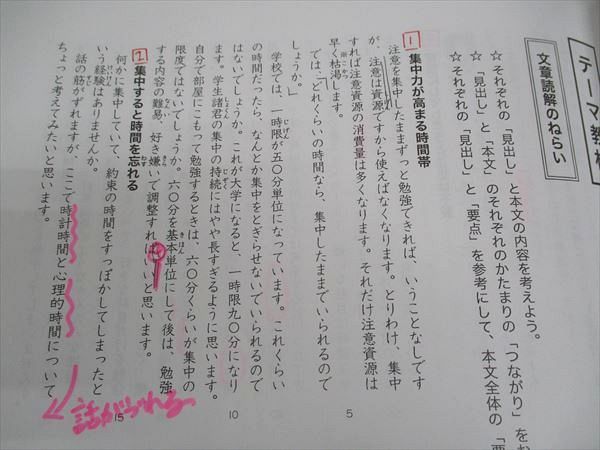 テーマ教材
文章読解のねらい
☆それぞれの「見出し」と本文の内容を考えよう。
☆「見出し」と「本文」のそれぞれのかたまりの「つながり」をお
☆それぞれの「見出し」と「要点」を参考にして、本文全体の「要
1 集中力が高まる時間帯
注意を集中したままずっと勉強できれば、いうことなしです
が、注意は資源ですから使えばなくなります。とりわけ、集中
すれば注意資源の消費量は多くなります。それだけ注意資源は
早く※枯渇します。
では、「どれくらいの時間なら、集中したままでいられるので
しょうか。」
学校では、一時限が五〇分単位になっています。これくらい
の時間だったら、なんとか集中をとぎらせないでいられるので
はないでしょうか。これが大学になると、一時限九〇分になり
ます。学生諸君の集中の持続にはやや長すぎるように思います。
自分で部屋にこもって勉強するときは、六〇分くらいが集中の
限度ではないでしょうか。六〇分を基本単位にして後は、勉強
する内容の難易、好き嫌いで調整すればいいと思います。
2 集中すると時間を忘れる
何かに集中していて、約束の時間をすっぽかしてしまったと
いう経験はありませんか。
話の筋がずれますが、ここで時計時間と心理的時間について
ちょっと考えてみたいと思います。
5
10
15
話がずれる